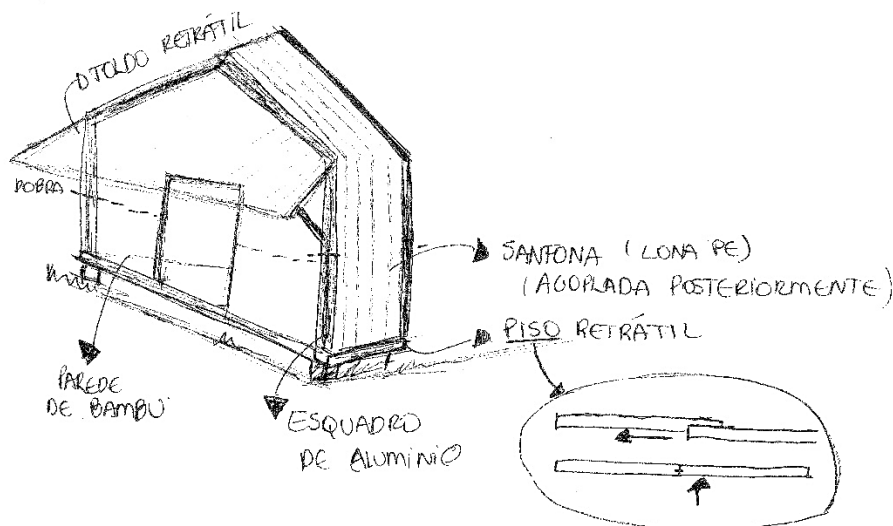 TOLDO RETRÁTIL
DOBRA
SANFONA (LONA PE)
(ACOPLADA POSTERIORMENTE)
PISO RETRÁTIL
PAREDE
DE BAMBU
ESQUADRO
DE ALUMINIO